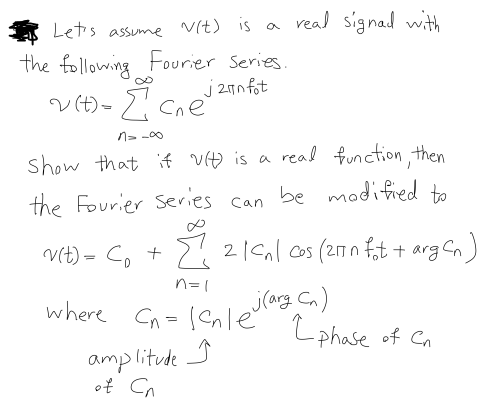 Let's assume v(t) is a real signal with
the following Fourier Series.
v(t) = ∑_{n=-∞}^{∞} C_n e^{j2πnf₀t}
Show that if v(t) is a real function, then
the Fourier Series can be modified to
v(t) = C₀ + ∑_{n=1}^{∞} 2|C_n| cos(2πnf₀t + arg C_n)
where C_n = |C_n| e^{j(arg C_n)}
phase of C_n
amplitude
of C_n